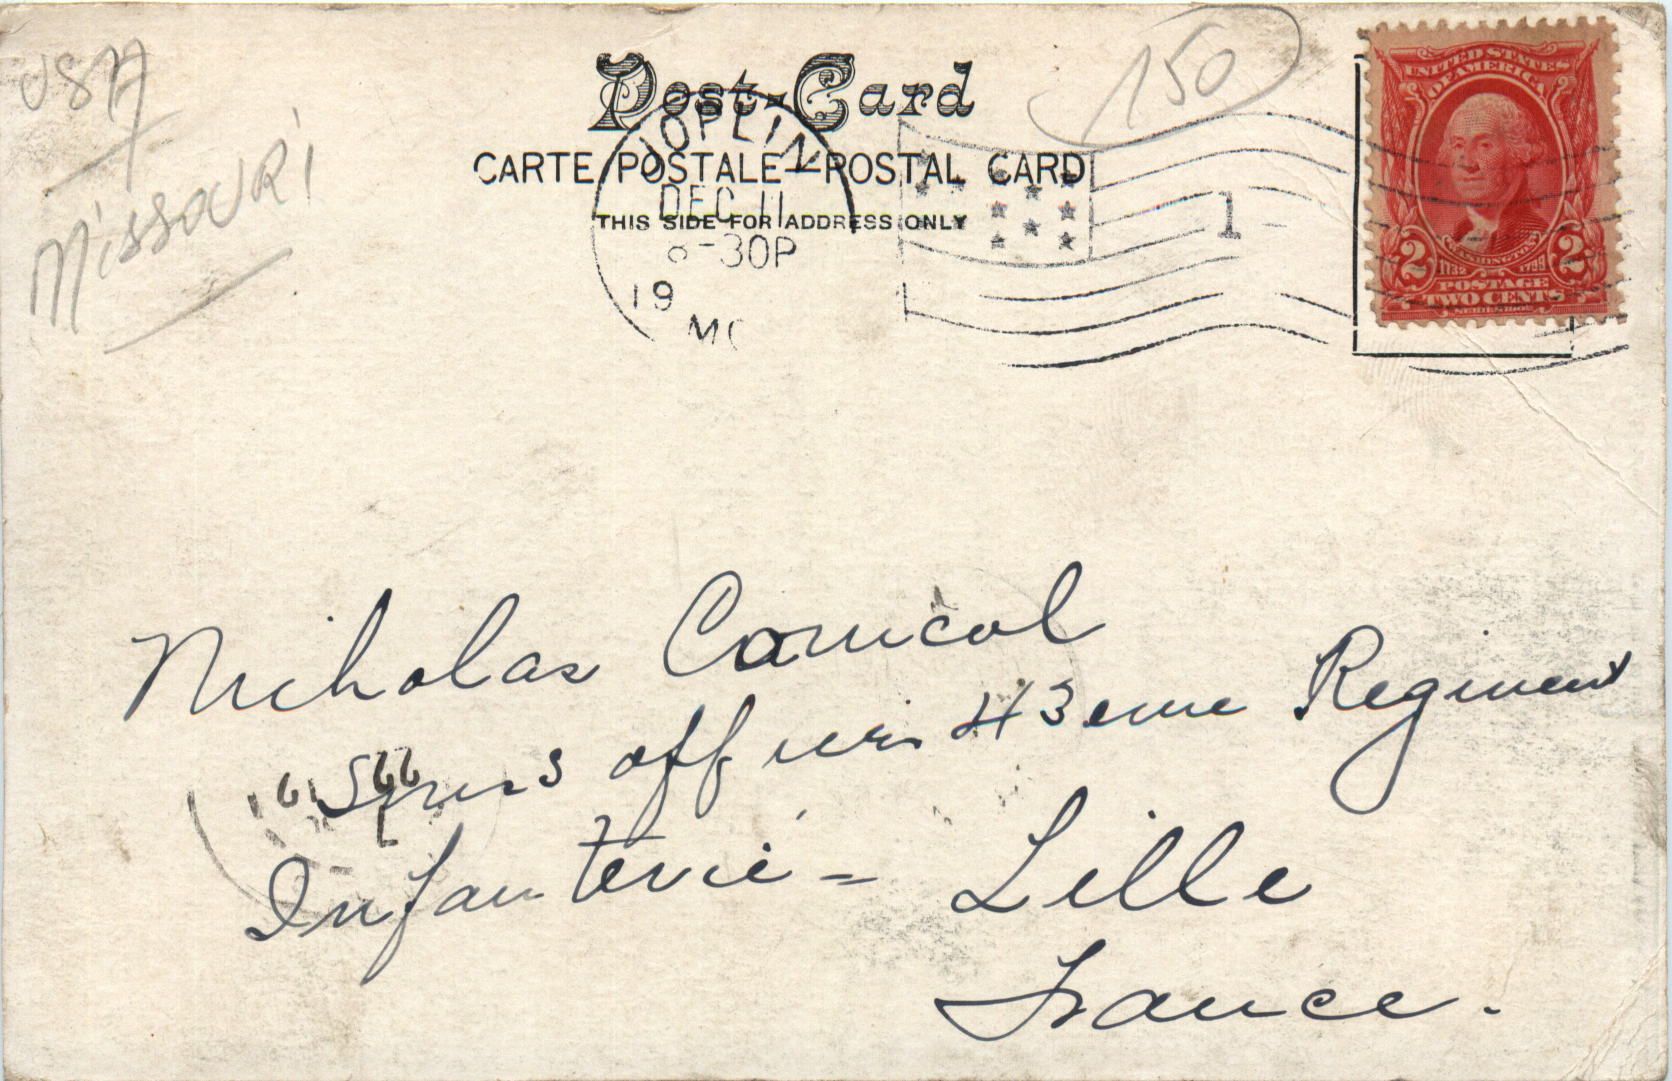 USA
Missouri
150
Post-Card
CARTE POSTALE–POSTAL CARD
THIS SIDE FOR ADDRESS ONLY
JOPLIN
DEC 11
8-30P
19
MO
1
UNITED STATES
OF AMERICA
WASHINGTON
1732 1799
2 2
POSTAGE
TWO CENTS
SERIES 1902
Nicholas
Sous officier 43eme Regiment
Infanterie - Lille
France.